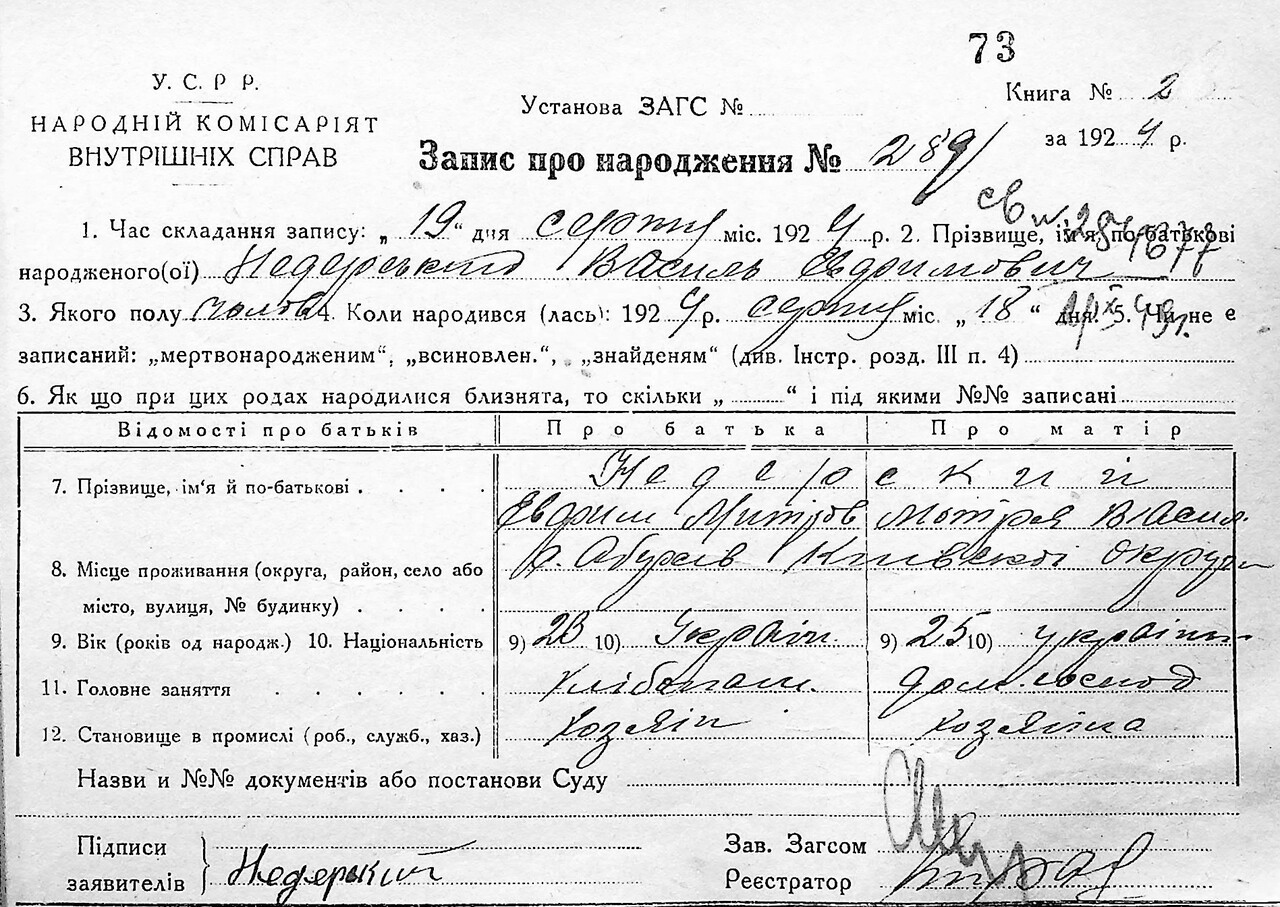 73
У. С. Р Р.
НАРОДНІЙ КОМІСАРІЯТ
ВНУТРІШНІХ СПРАВ
Установа ЗАГС №
Книга № 2
за 1924 р.
Запис про народження № 289
1. Час складання запису: „ 19 “ дня серпня міс. 1924 р. 2. Прізвище, ім'я по-батькові
народженого(ої) Недерський Василь Евдримович
3. Якого полу 4. Коли народився (лась): 1924 р. серпня міс. „ 18 “ дня. 5. Чи не е
записаний: „мертвонародженим“, „всиновлен.“, „знайденям“ (див. Інстр. розд. III п. 4)
6. Як що при цих родах народилися близнята, то скільки „ “ і під якими №№ записані
Відомості про батьків Про батька Про матір
7. Прізвище, ім'я й по-батькові . . . . Недерский
Евдрим Митров Мотря Васил.
8. Місце проживання (округа, район, село або
місто, вулиця, № будинку) . . . . Абухів Київскої Округи
9. Вік (років од народж.) 10. Національність 9) 23 10) Україн. 9) 25 10) україн.
11. Головне заняття . . . . . . Хлібопаш. дом. господ
12. Становище в промислі (роб., служб., хаз.) хозяін хозяіка
Назви и №№ документів або постанови Суду
Підписи
заявителів } Недерский
Зав. Загсом
Реєстратор